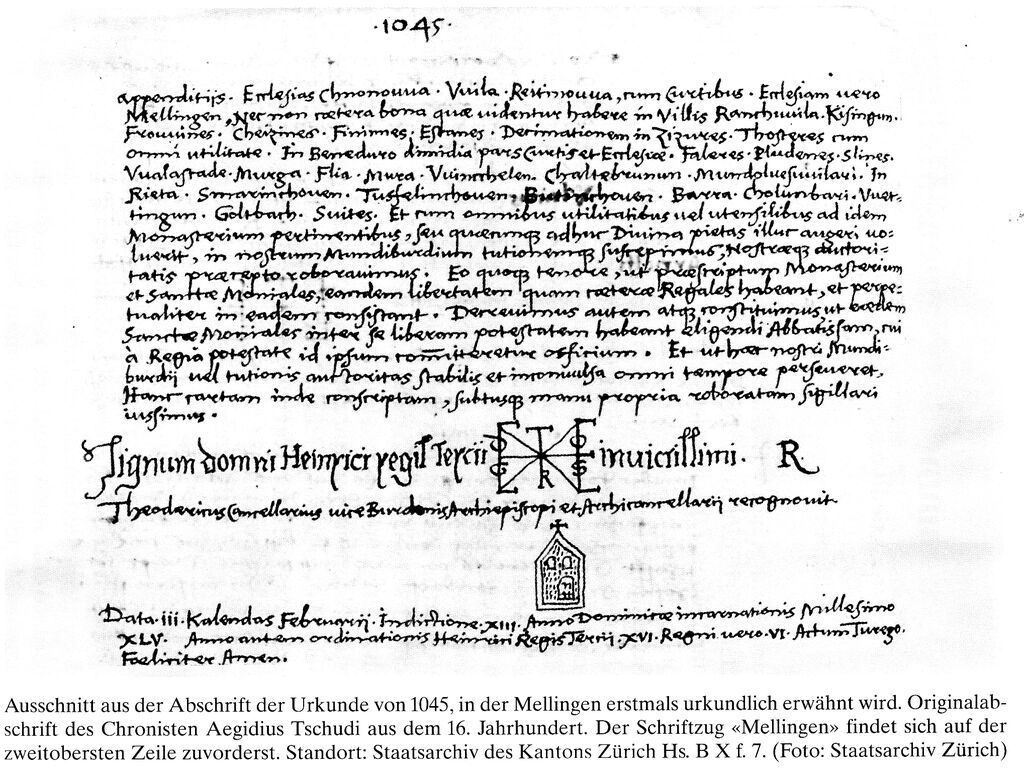 ·1045·
appenditijs. Ecclesias Chnonovva. Vvila. Reitinovva, cum Curtibus. Ecclesiam vero
Mellingen, Nec non cætera bona quæ videntur habere in Villis Ranchvvila. Kisingun.
Frovvines. Cheizines. Finimes. Estanes. Decimationem in Zizures. Thosteres cum
omni utilitate. In Beneduro dimidia pars Curtis et Ecclesiæ. Faleres. Pludenes. Slines.
Vualastade. Murga. Flia. Mura. Vuincchelen. Chaltebrunun. Mundoluesuuilari. In
Rieta. Smarinchoven. Tusselinchoven. Barra. Cholunbari. Vuet-
tingun. Goltbach. Suites. Et cum omnibus utilitatibus vel utensilibus ad idem
Monasterium pertinentibus, seu quæcunq adhuc Divina pietas illuc augeri vo-
luerit, in nostrum Mundiburdium tutionemq suscepimus, Nostræq auctori-
tatis præcepto roboravimus. Eo quoq tenore, ut præscriptum Monasterium
et Sanctæ Moniales, eamdem libertatem quam cæteræ Regales habeant, et perpe-
tualiter in eadem consistant. Decrevimus autem atq constituimus, ut eædem
Sanctæ Moniales inter se liberam potestatem habeant eligendi Abbatissam, cui
à Regia potestate id ipsum comitteretur officium. Et ut hæc nostri Mundi-
burdij vel tutionis auctoritas stabilis et inconvulsa omni tempore perseveret,
Hanc cartam inde conscriptam, subtusq manu propria roboratam sigillari
iussimus.
Signum domni Heinrici regis Tercii invictissimi. R.
Theodericus Cancellarius vice Bardonis Archiepiscopi et Archicancellarii recognovit.
Data .iii. Kalendas Februarij. Indictione .xiii. Anno Dominicæ incarnationis Millesimo
XLV. Anno autem ordinationis Heinrici Regis Tercij .XVI. Regni vero .VI. Actum Turego.
Fœliciter Amen.
Ausschnitt aus der Abschrift der Urkunde von 1045, in der Mellingen erstmals urkundlich erwähnt wird. Originalab-
schrift des Chronisten Aegidius Tschudi aus dem 16. Jahrhundert. Der Schriftzug «Mellingen» findet sich auf der
zweitobersten Zeile zuvorderst. Standort: Staatsarchiv des Kantons Zürich Hs. B X f. 7. (Foto: Staatsarchiv Zürich)